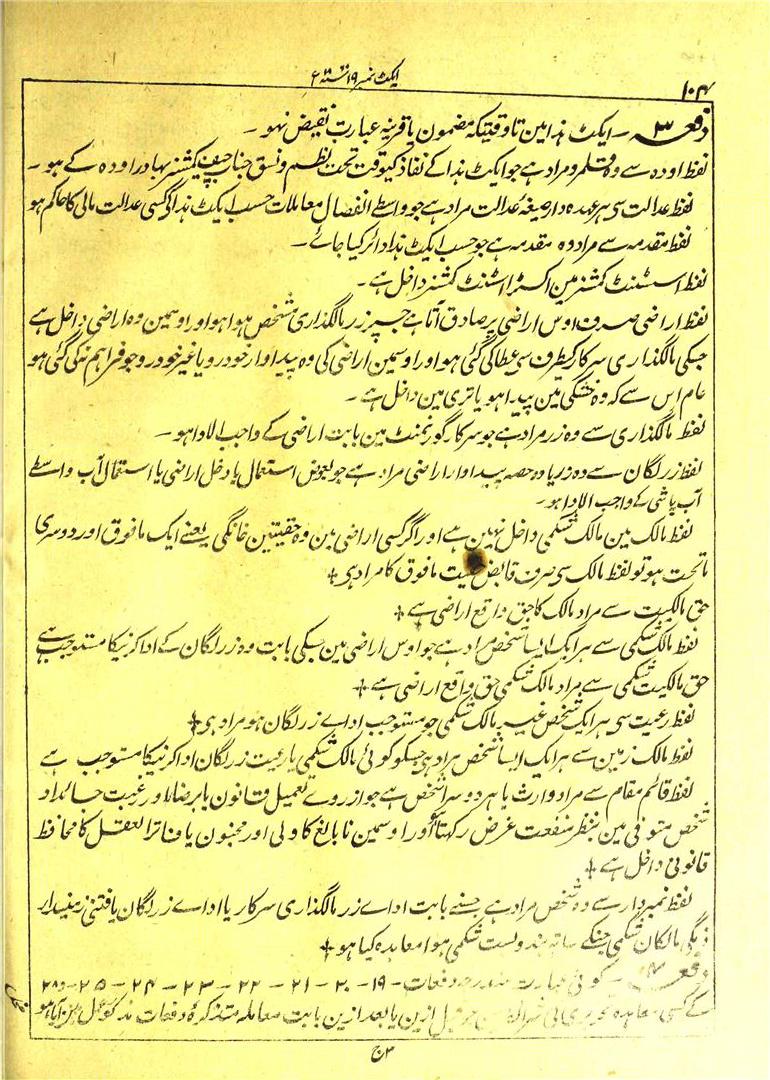 ایکٹ نمبر ۱۹ سنہ ۶
۱۰۴
دفعہ ۳ - ایکٹ ہذا مین تا وقتیکہ مضمون یا قرینہ عبارت نقیض نہو -
لفظ اودہ سے وہ قلمرو مراد ہے جو ایکٹ ہذا کے نفاذ کیوقت تحت نظم و نسق جناب چیف کمیشنر بہادر اودہ کے ہو -
لفظ عدالت سی ہر عہدہ دار صیغہ عدالت مراد ہے جو واسطے انفصال معاملات حسب ایکٹ ہذا کی کسی عدالت مالی کا حاکم ہو
لفظ مقدمہ سے مراد وہ مقدمہ ہے جو حسب ایکٹ ہذا دائر کیا جائے -
لفظ اسسٹنٹ کمشنر مین اکسٹرا اسٹنٹ کمشنر داخل ہے -
لفظ اراضی صرف اوس اراضی پر صادق آتا ہے جسپر زر مالگذاری مشخص ہوا ہو اور اوسمین وہ اراضی داخل ہے
جسکی مالگذاری سرکار کیطرف سی عطا کی گئی ہو اور اوسمین اراضی کی وہ پیداوار خودرو یا غیر خودرو جو فراہم نکی گئی ہو
عام اس سے کہ وہ خشکی مین پیدا ہو یا تری مین داخل ہے -
لفظ مالگذاری سے وہ زر مراد ہے جو سرکار گورنمنٹ مین بابت اراضی کے واجب الادا ہو -
لفظ زر لگان سے وہ زر یا وہ حصہ پیداوار اراضی مراد ہے جو بعوض استعمال یا دخل اراضی یا استعمال آب واسطے
آب پاشی کے واجب الادا ہو -
لفظ مالک مین مالک شکمی داخل نہین ہے اور اگر کسی اراضی مین دو حقیتین خانگی یعنے ایک مافوق اور دوسری
ماتحت ہو تو لفظ مالک سی صرف قابض حقیت مافوق کا مراد ہی +
حق مالکیت سے مراد مالک کا حق واقع اراضی ہے +
لفظ مالک شکمی سے ہر ایک ایسا شخص مراد ہے جو اوس اراضی مین جسکی بابت وہ زر لگان کے ادا کرنیکا مستوجب ہے
حق مالکیت شکمی سے مراد مالک شکمی حق واقع اراضی ہے +
لفظ رعیت سی ہر ایک شخص غیر مالک شکمی جو مستوجب اداے زر لگان ہو مراد ہی +
لفظ مالک زمین سے ہر ایک ایسا شخص مراد ہی جسکو کوئی مالک شکمی یا رعیت زر لگان ادا کرنیکا مستوجب ہے
لفظ قائم مقام سے مراد وارث یا ہر دوسرا شخص ہے جو از روے تعمیل قانون یا برضا و رغبت جائداد
شخص متوفی مین بنظر منفعت غرض رکھتا ہو اور اوسمین نابالغ کا ولی اور مجنون یا فاتر العقل کا محافظ
قانونی داخل ہے +
لفظ نمبردار سے وہ شخص مراد ہے جسنے بابت اداے زر مالگذاری سرکار یا اداے زر لگان یافتنی زمیندار
ذمگی مالکان شکمی جنکے ساتھ بندوبست شکمی ہوا معاہدہ کیا ہو +
دفعہ ۴ - کوئی عبارت مندرجہ دفعات - ۱۹ - ۲۰ - ۲۱ - ۲۲ - ۲۳ - ۲۴ - ۲۵ -
کے کسی معاہدہ تحریری مابین قبل ازین یا بعد ازین بابت معاملہ متذکرہ دفعات مذکور عمل مین آیا ہو
۳ ج